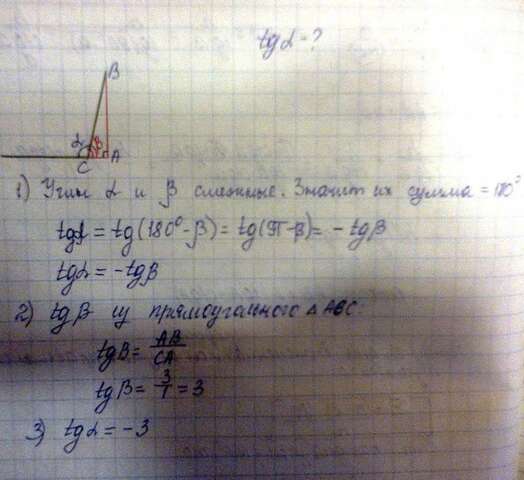 tgα = ?
B
α β
C A
1) Углы α и β смежные. Значит их сумма = 180°
tgα = tg(180° - β) = tg(π - β) = - tgβ
tgα = - tgβ
2) tgβ из прямоугольного Δ ABC
tgβ = AB/CA
tgβ = 3/1 = 3
3) tgα = - 3